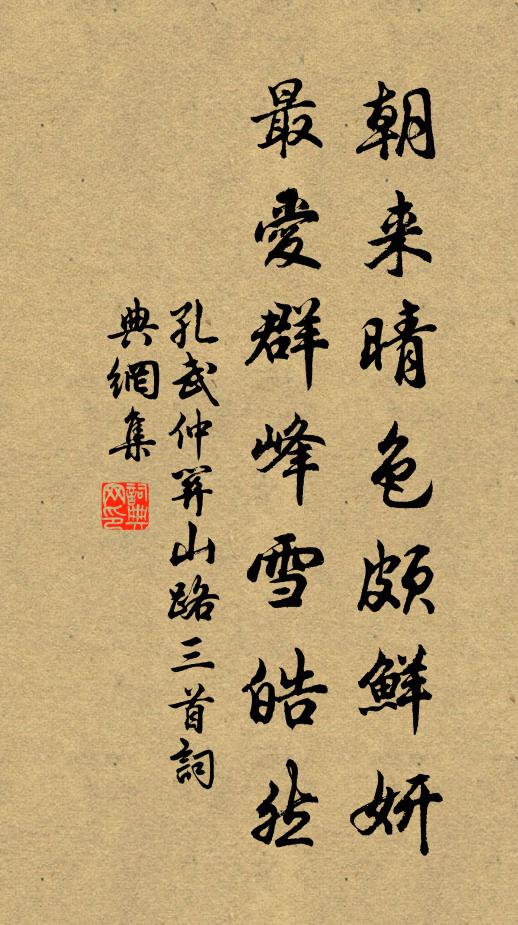 朝来晴色頗鮮妍
最愛群峰雪皓然
孔武仲山路三首詞
典網集
詞典
网印